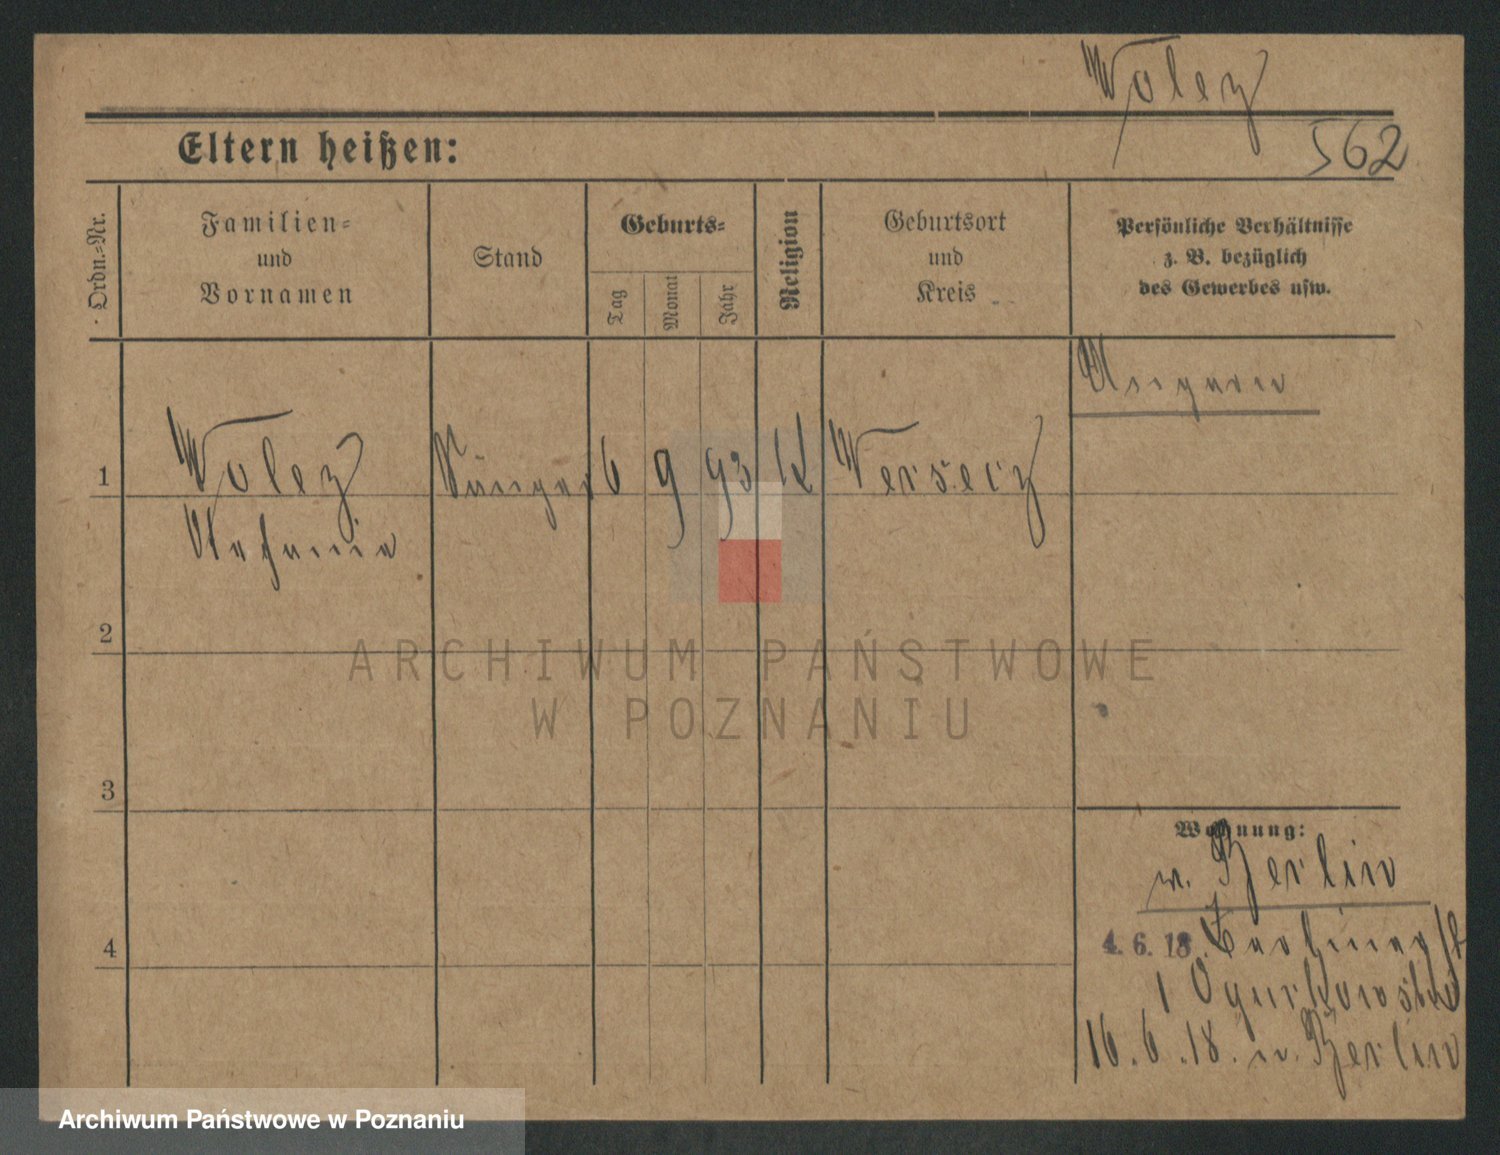 Wolez
562
Eltern heißen:
Ordn.-Nr.
Familien-
und
Vornamen
Stand
Geburts-
Tag
Monat
Jahr
Religion
Geburtsort
und
Kreis
Persönliche Verhältnisse
z. B. bezüglich
des Gewerbes usw.
Ungarn
1 Wolez 6 9 93 K Versecz
2
3
4
Wohnung:
v. Berlin
4. 6. 18.
1
16. 6. 18. n. Berlin
ARCHIWUM PAŃSTWOWE
W POZNANIU
Archiwum Państwowe w Poznaniu